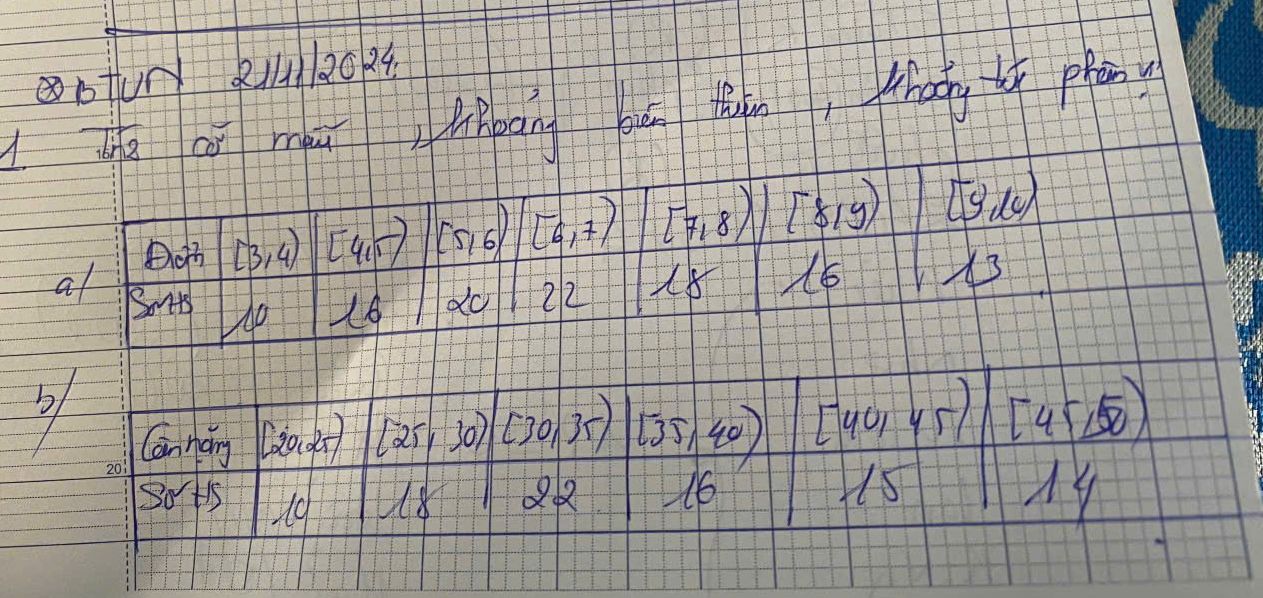 BTVN 21/11/2024
1 Tìm cỡ mẫu, khoảng biến thiên, khoảng tứ phân vị
a/ Điểm [3,4) [4,5) [5,6) [6,7) [7,8) [8,9) [9,10)
Số HS 10 16 20 22 18 16 13
b/ Cân nặng [20,25) [25, 30) [30,35) [35, 40) [40, 45) [45,50)
20
Số HS 10 18 22 16 15 14